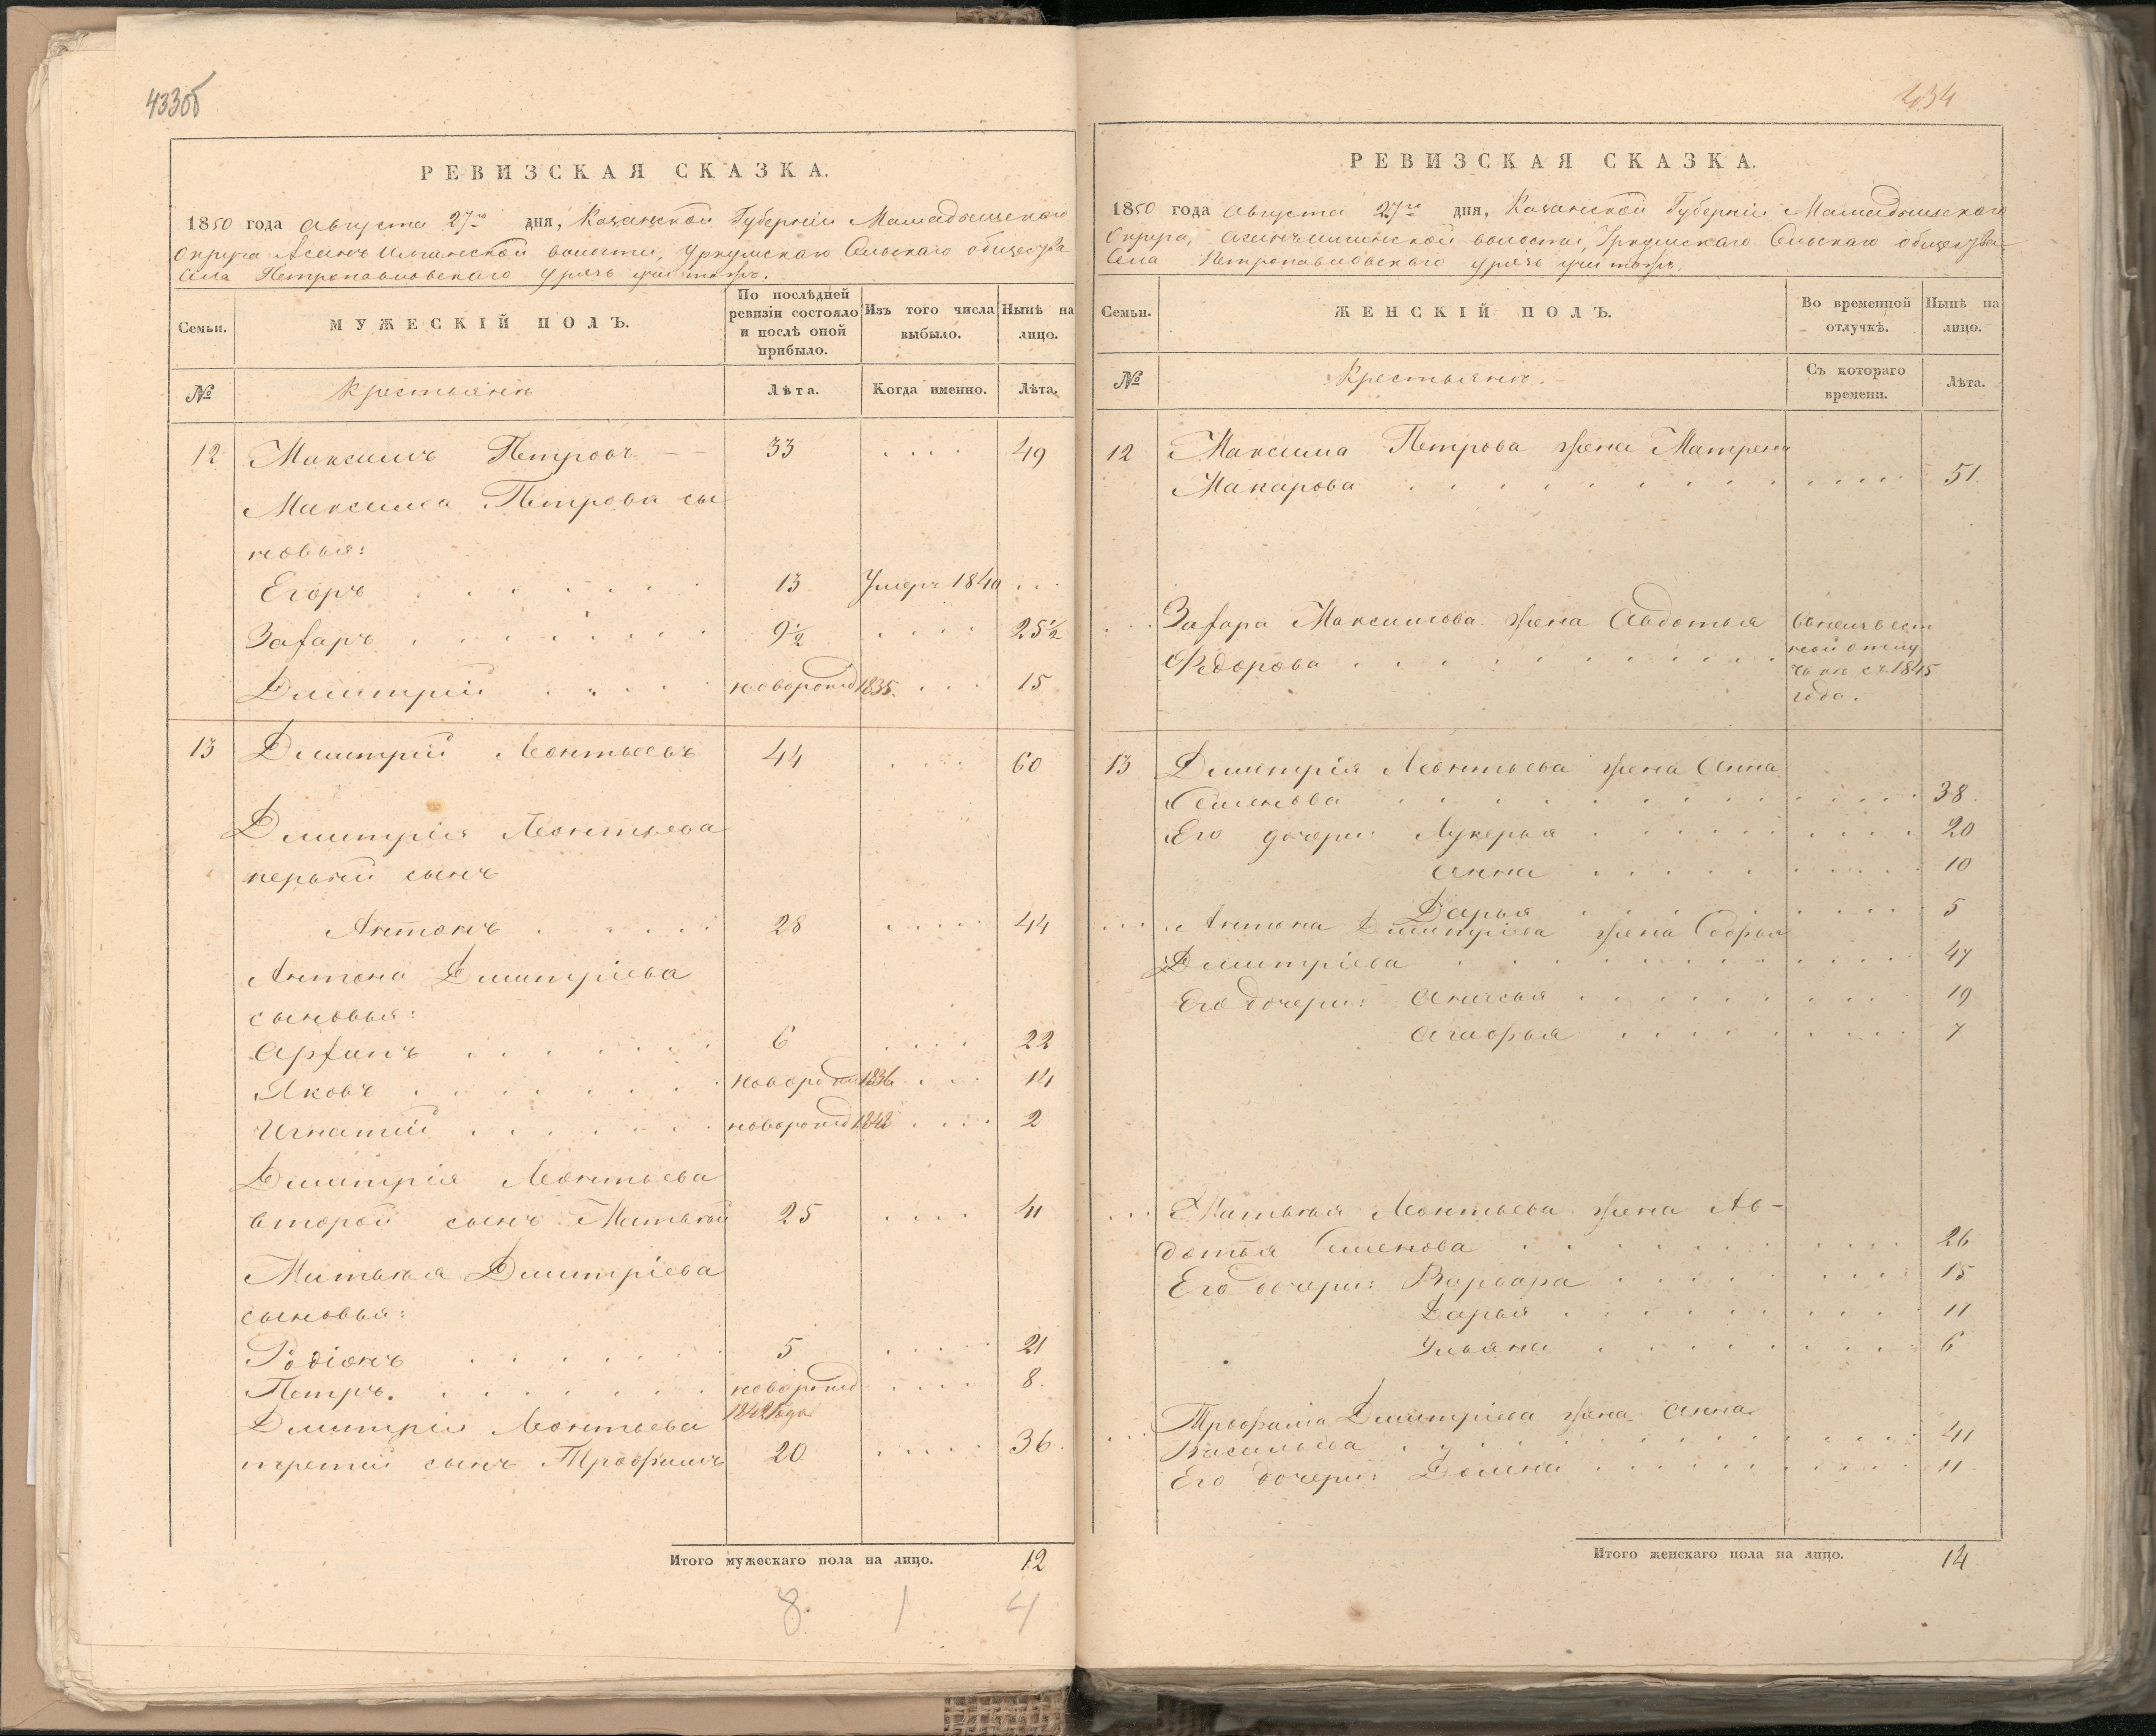 433об
РЕВИЗСКАЯ СКАЗКА.
1850 года Августа 27го дня, Казанской Губерніи Мамадышскаго
Округа волости, Уркушскаго Сельскаго общества
Села Петропавловскаго Уречь тожъ.
Семьи.
МУЖЕСКІЙ ПОЛЪ.
По послѣдней ревизіи состояло и послѣ оной прибыло.
Изъ того числа выбыло.
Нынѣ на лицо.
№
Крестьяне
Лѣта.
Когда именно.
Лѣта.
12 Максимъ Петровъ 33 .... 49
Максима Петрова сы
новья:
Егоръ 13 Умеръ 1840 ...
Захаръ 9½ .... 25½
Дмитрій новорожд 1835. ... 15
13 Дмитрій Леонтьевъ 44 .... 60
Дмитрія Леонтьева
первый сынъ
Антонъ 28 .... 44
Антона Дмитріева
сыновья:
Архипъ 6 .... 22
Яковъ новорожд 1836 ... 14
Игнатій новорожд 1848 .... 2
Дмитрія Леонтьева
второй сынъ Матвѣй 25 .... 41
Матвѣя Дмитріева
сыновья:
Родіонъ 5 .... 21
Петръ. новорожд .... 8.
1842 года
Дмитрія Леонтьева
третій сынъ Трофимъ 20 .... 36.
Итого мужескаго пола на лицо. 12
8. 1 4
434
РЕВИЗСКАЯ СКАЗКА.
1850 года Августа 27го дня, Казанской Губерніи Мамадышскаго
Округа, волости, Уркушскаго Сельскаго общества
Села Петропавловскаго Уречь тожъ.
Семьи.
ЖЕНСКІЙ ПОЛЪ.
Во временной отлучкѣ.
Нынѣ на лицо.
№
Крестьяне.
Съ котораго времени.
Лѣта.
12 Максима Петрова жена Матрена
Макарова 51.
... Захара Максимова жена Авдотья
Федорова
въ неизвѣст
ной отлу
чкѣ съ 1845
года.
13 Дмитрія Леонтьева жена Анна
Семенова 38.
Его дочери: Лукерья 20
Анна 10
Дарья 5
... Антона Дмитріева жена Софья
Дмитріева 47
Его дочери: Анисья 19
Агафья 7
... Матвѣя Леонтьева жена Ав-
дотья Семенова 26
Его дочери: Варвара 15
Дарья 11
Ульяна 6
... Трофима Дмитріева жена Анна
Васильева 41
Его дочери: Домна 11
Итого женскаго пола на лицо. 14